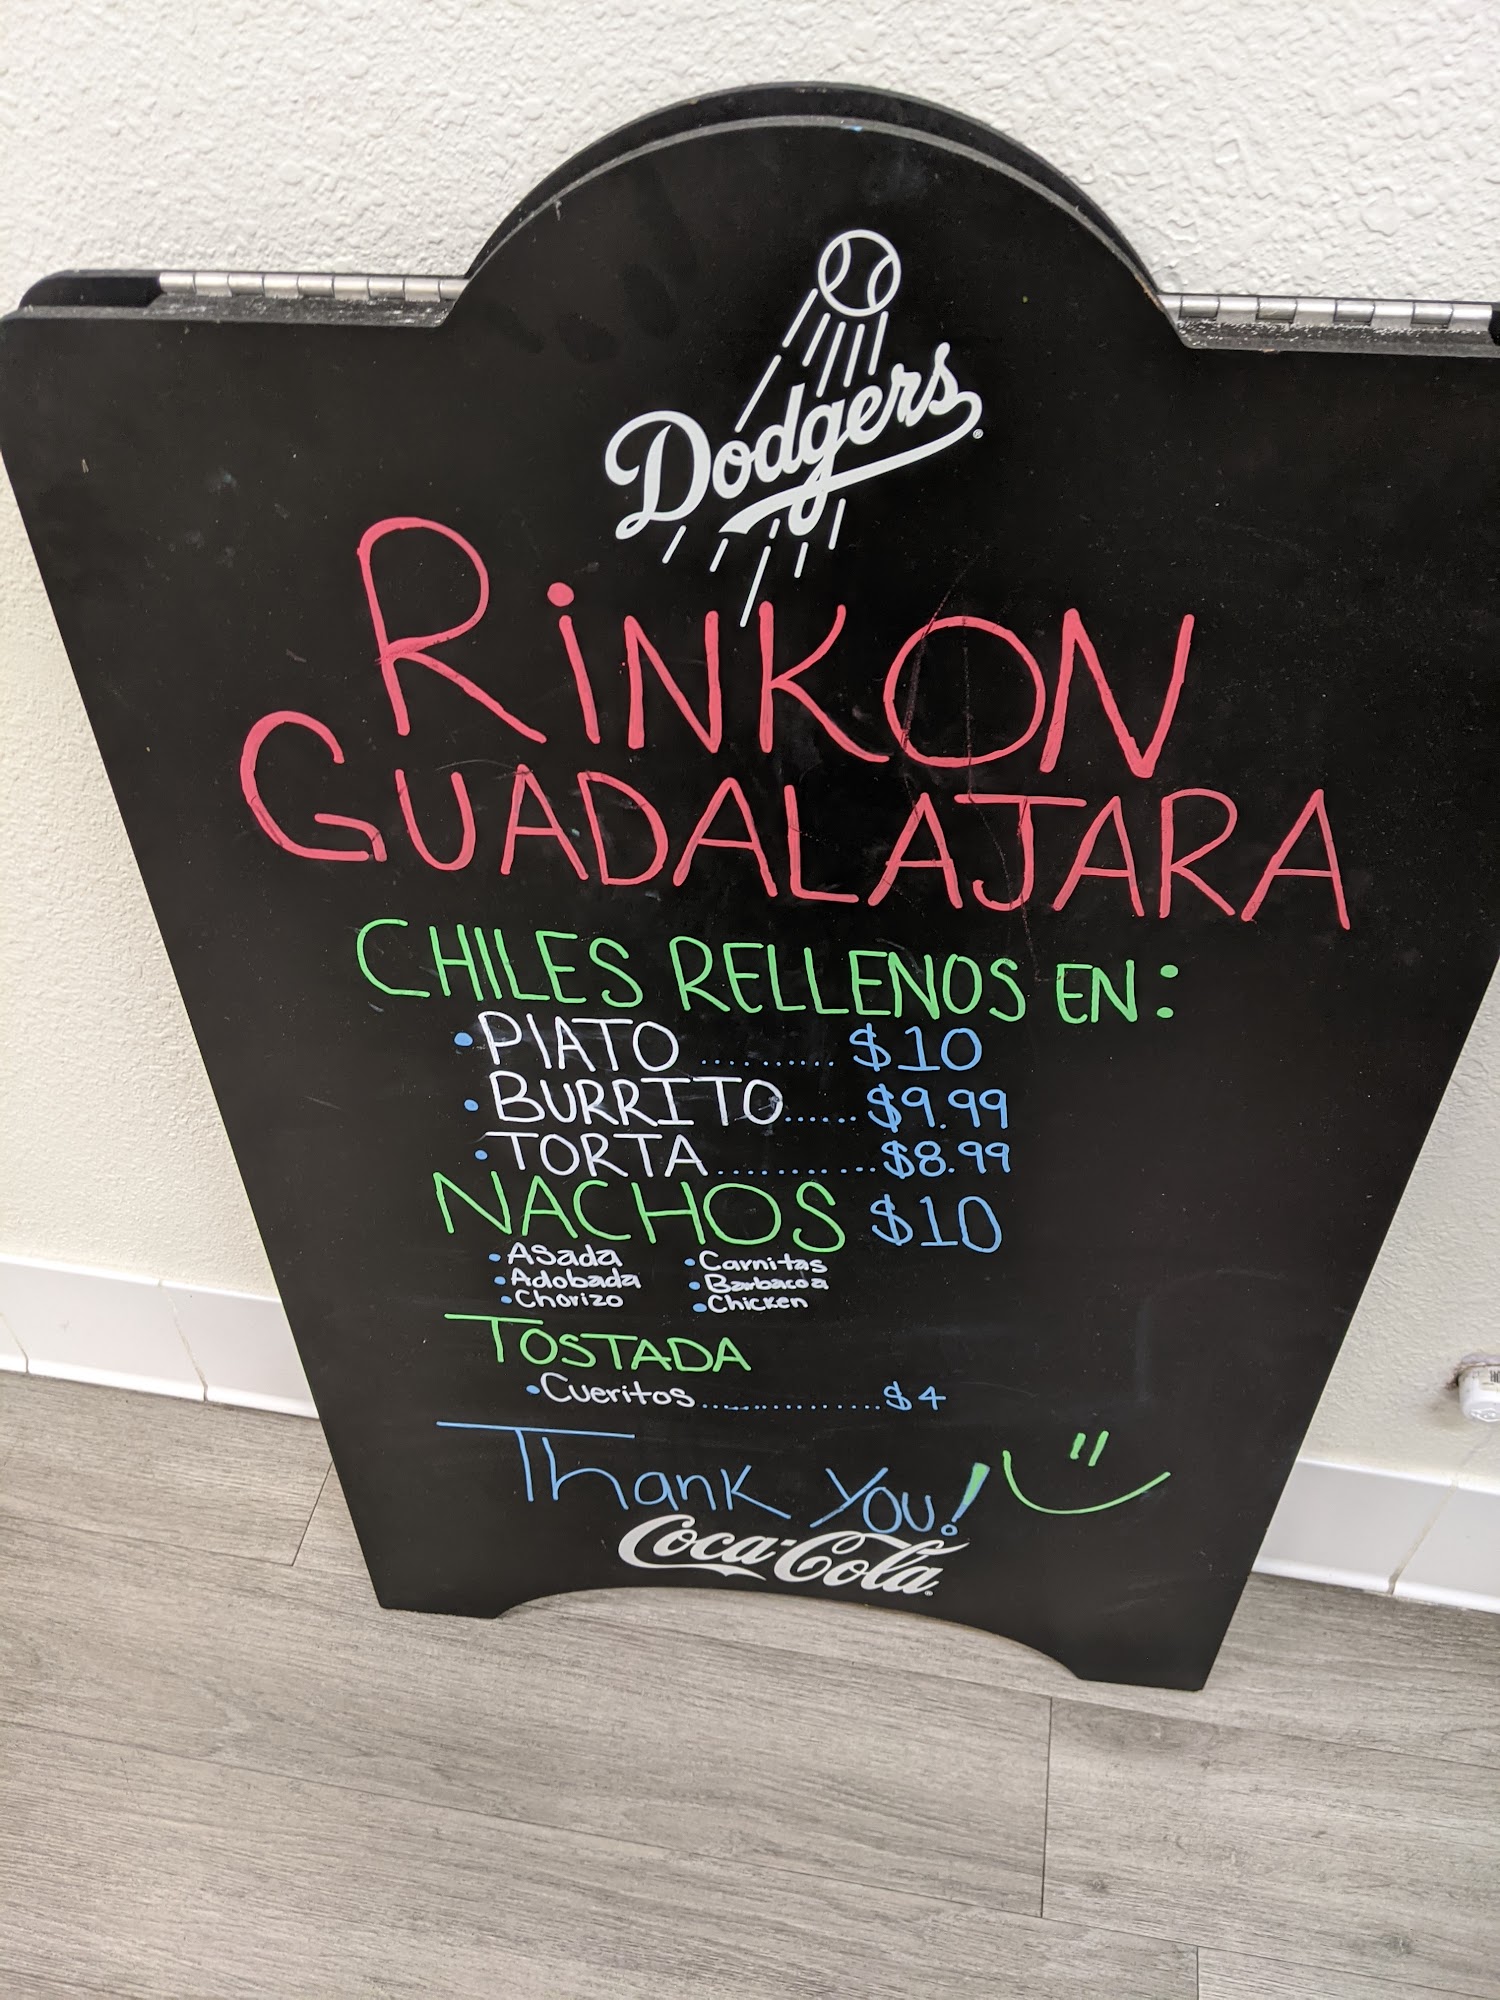 Dodgers
RiNKON
GUADALAJARA
CHILES RELLENOS EN:
• PlATO .......... $10
• BURRITO...... $9.99
• TORTA............ $8.99
NACHOS $10
• Asada • Carnitas
• Adobada • Barbacoa
• Chorizo • Chicken
TOSTADA
• Cueritos............... $4
Thank You!
Coca-Cola